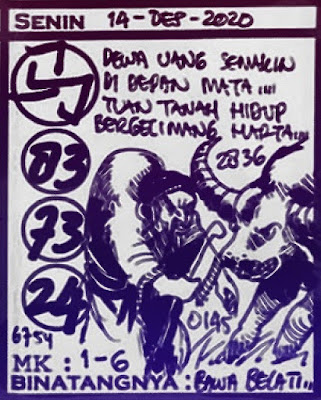 SENIN 14-DES-2020
DEWA UANG SEMAKIN
DI DEPAN MATA...
TUAN TANAH HIDUP
BERGELIMANG HARTA...
2836
83
73
24
0145
6754
MK : 1-6
BINATANGNYA : BAWA BELATI..